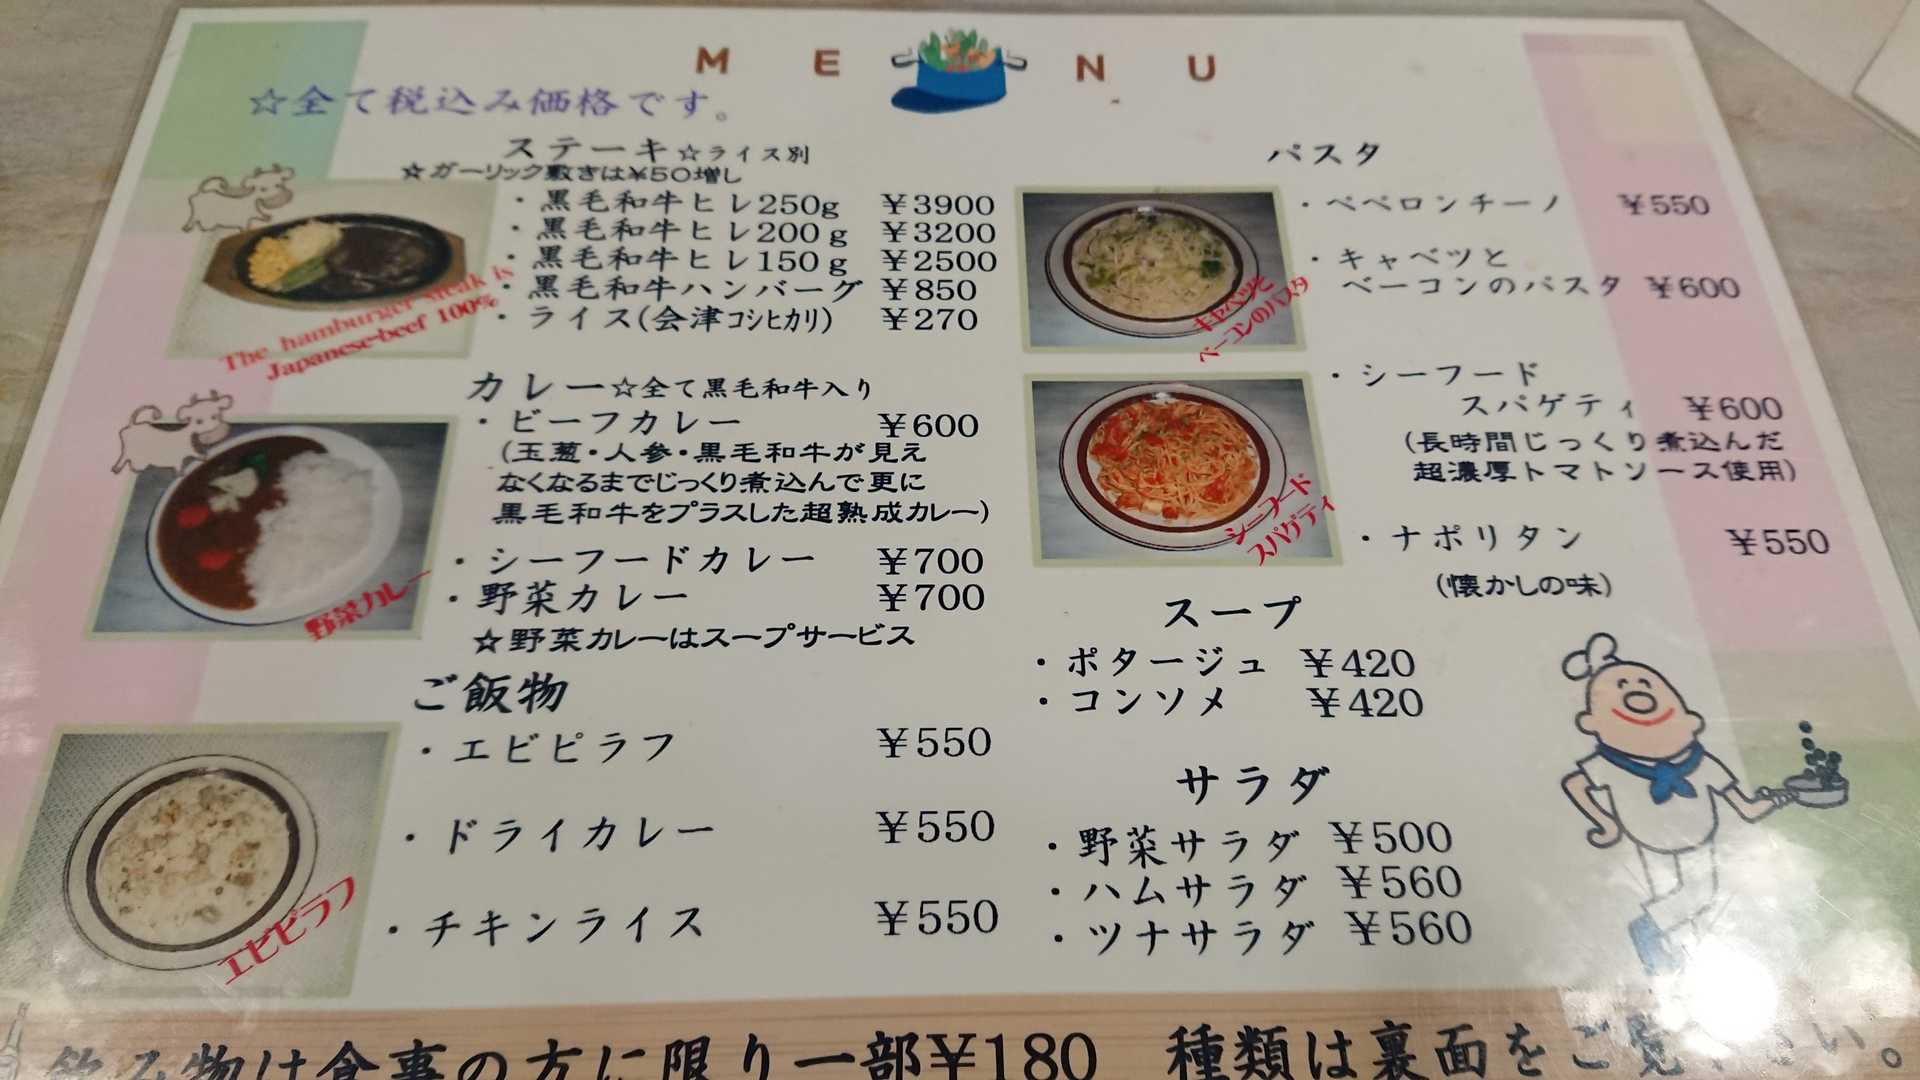 MENU
☆全て税込み価格です。
ステーキ☆ライス別
☆ガーリック敷きは¥50増し
・黒毛和牛ヒレ250g ¥3900
・黒毛和牛ヒレ200g ¥3200
・黒毛和牛ヒレ150g ¥2500
・黒毛和牛ハンバーグ ¥850
・ライス(会津コシヒカリ) ¥270
The hamburger steak is
Japanese-beef 100%
カレー☆全て黒毛和牛入り
・ビーフカレー ¥600
(玉葱・人参・黒毛和牛が見え
なくなるまでじっくり煮込んで更に
黒毛和牛をプラスした超熟成カレー)
・シーフードカレー ¥700
・野菜カレー ¥700
☆野菜カレーはスープサービス
野菜カレー
ご飯物
・エビピラフ ¥550
・ドライカレー ¥550
・チキンライス ¥550
エビピラフ
パスタ
・ペペロンチーノ ¥550
・キャベツと
ベーコンのパスタ ¥600
キャベツと
ベーコンのパスタ
・シーフード
スパゲティ ¥600
(長時間じっくり煮込んだ
超濃厚トマトソース使用)
シーフード
スパゲティ
・ナポリタン ¥550
(懐かしの味)
スープ
・ポタージュ ¥420
・コンソメ ¥420
サラダ
・野菜サラダ ¥500
・ハムサラダ ¥560
・ツナサラダ ¥560
飲み物は食事の方に限り一部¥180 種類は裏面をご覧下さい。